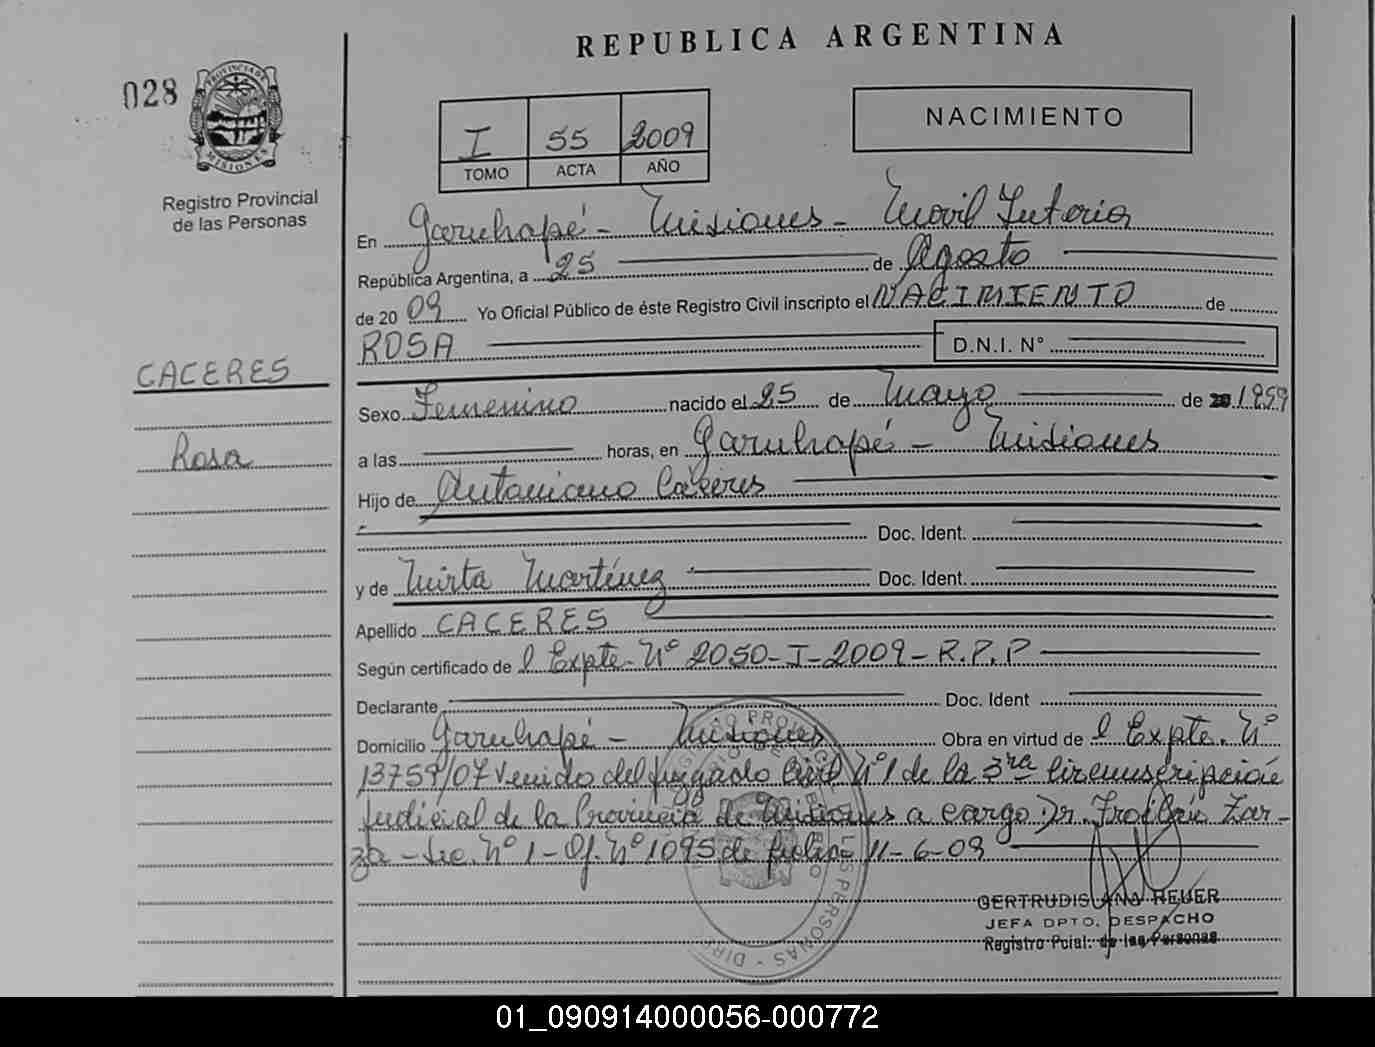 REPUBLICA ARGENTINA
028
PROVINCIA DE
MISIONES
Registro Provincial
de las Personas
I 55 2009
TOMO ACTA AÑO
NACIMIENTO
En Garuhapé - Misiones - Movil
República Argentina, a 25 de Agosto
de 20 09 Yo Oficial Público de éste Registro Civil inscripto el NACIMIENTO de
ROSA D.N.I. N°
CACERES
Sexo Femenino nacido el 25 de Mayo de 1959
Rosa
a las horas, en Garuhapé - Misiones
Hijo de Antoniano Cáceres
Doc. Ident.
y de Mirta Martínez Doc. Ident.
Apellido CACERES
Según certificado de l Expte. N° 2050-I-2009-R.P.P
Declarante Doc. Ident
Domicilio Garuhapé - Misiones Obra en virtud de l Expte. N°
13759/07 venido del juzgado Civil N°1 de la 3ra Circunscripción
Judicial de la Provincia de Misiones a cargo Dr. Zar-
za - Sec. N° 1 - Of. N° 1095 de fecha 11-6-09
GERTRUDIS ANA HEUER
JEFA DPTO. DESPACHO
Registro Pcial. de las Personas
01_090914000056-000772